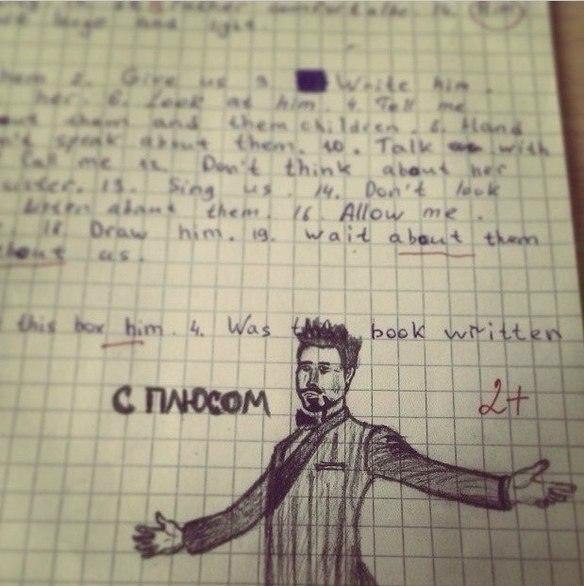 huge and light
them 2. Give us 3. Write him.
her. 6. Look at him. 7. Tell me
out them and them children. 8. Hand
n't speak about them. 10. Talk with
Call me 12. Don't think about her
sister. 13. Sing us. 14. Don't look
listen about them. 16. Allow me.
18. Draw him. 19. wait about them
about us.
this box him. 4. Was book written
с плюсом
2+